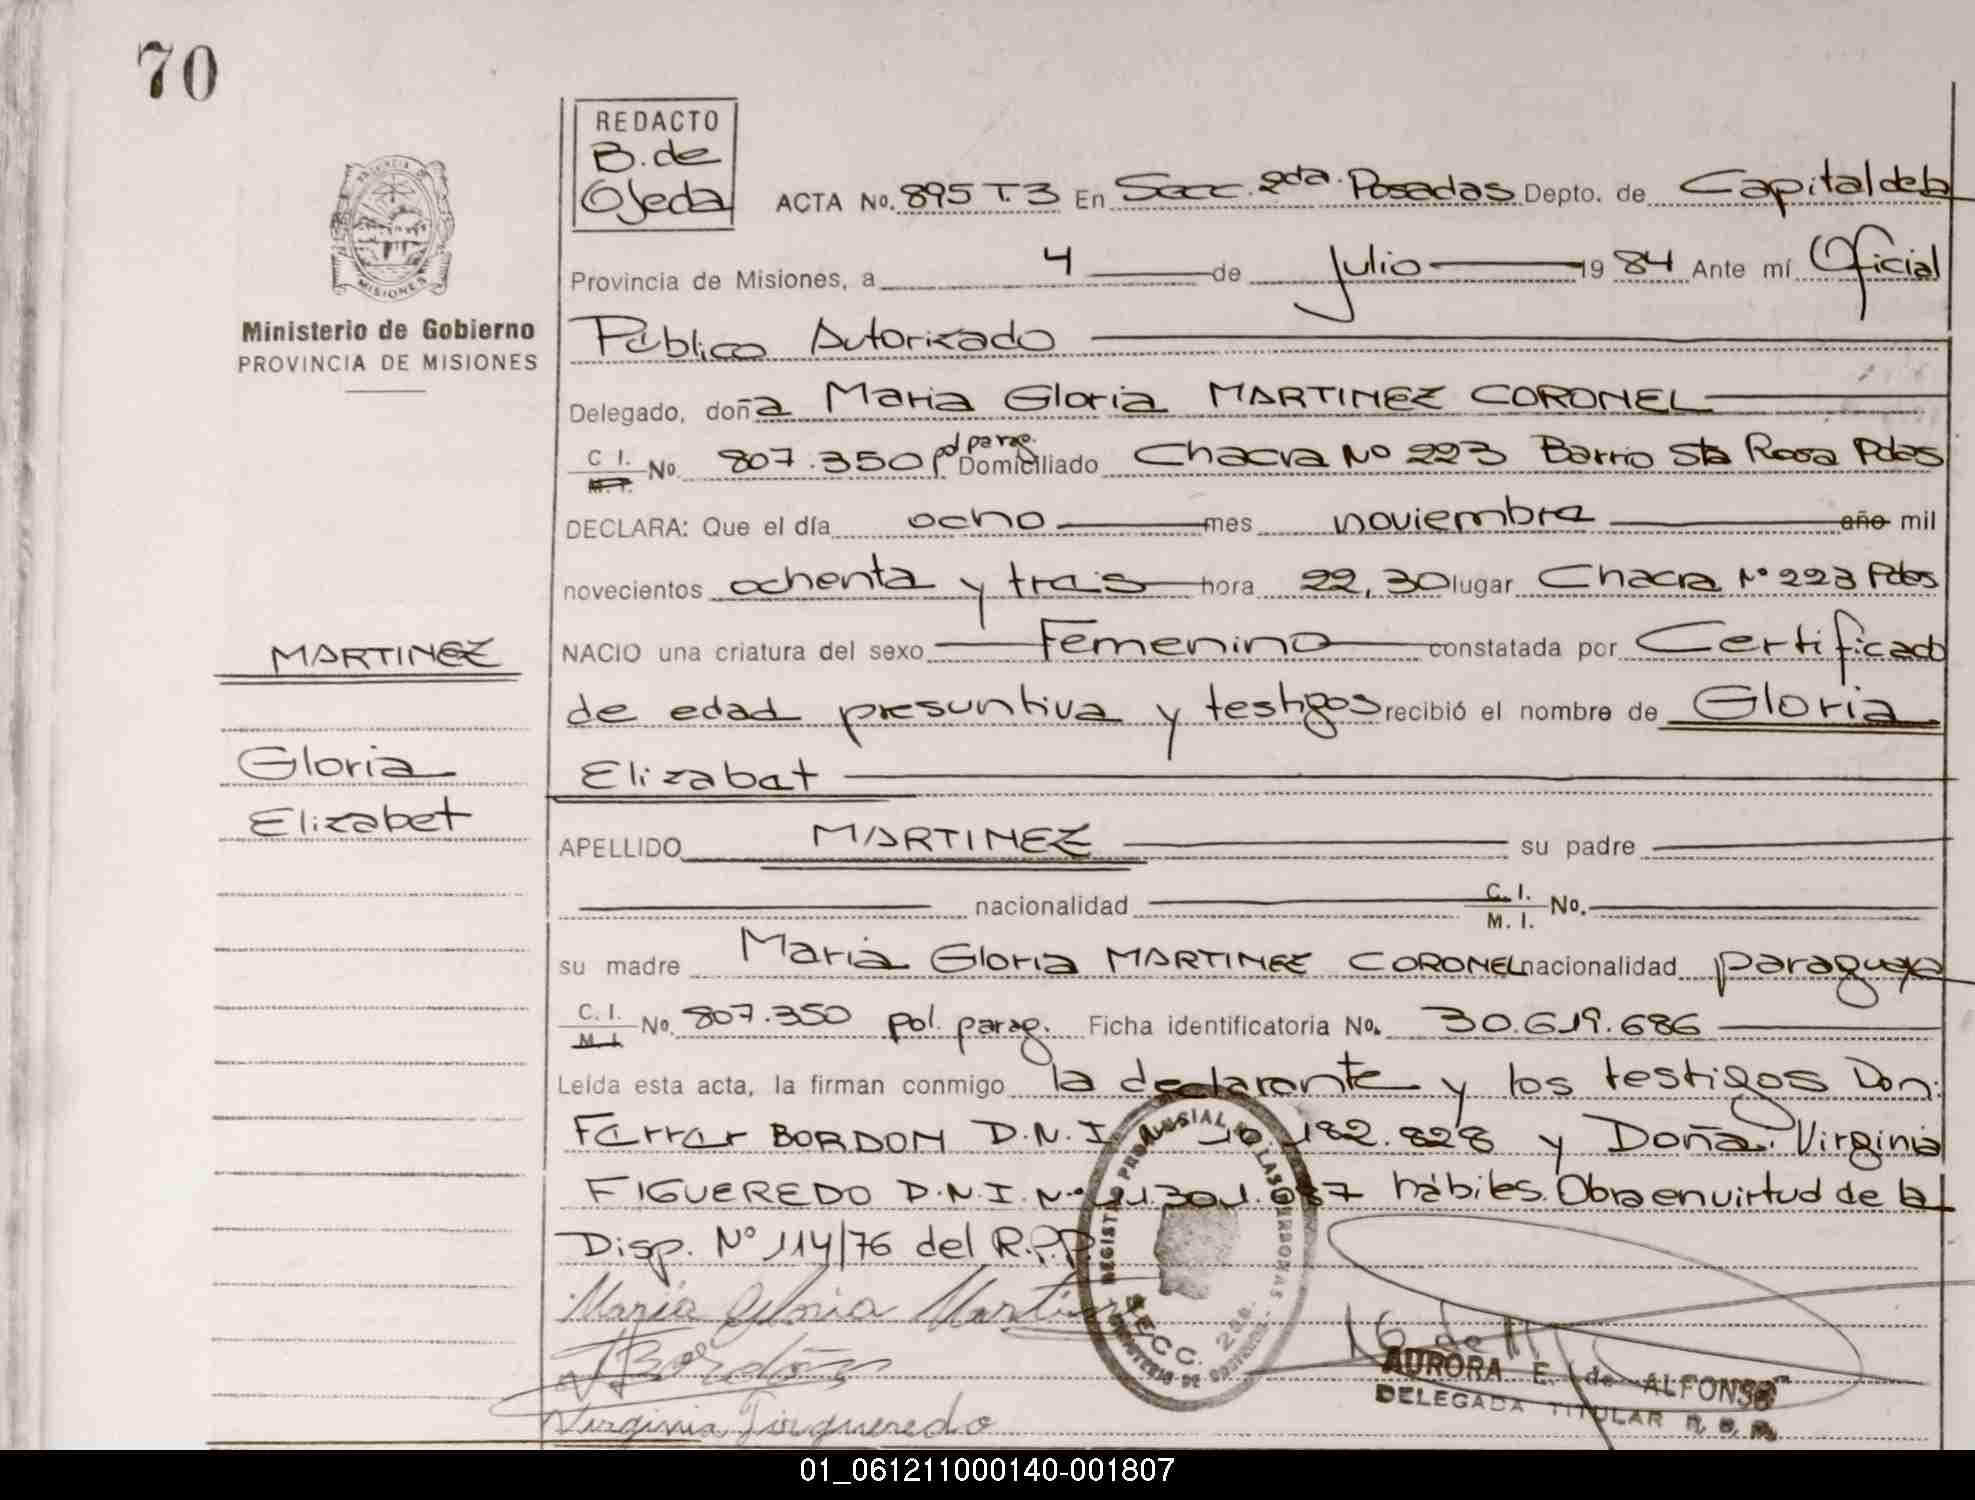 70
REDACTO
B. de
Ojeda
ACTA No. 895 T.3 En Secc. 2da. Posadas Depto. de Capital de la
Provincia de Misiones, a 4 de Julio 1984 Ante mí Oficial
Público Autorizado
Delegado, doña Maria Gloria MARTINEZ CORONEL
C I. M. I. No. 807.350 pol parag. Domiciliado Chacra No 223 Barrio Sta Rosa Pdas
DECLARA: Que el día ocho mes noviembre año mil
novecientos ochenta y tres hora 22,30 lugar Chacra N° 223 Pdas
NACIO una criatura del sexo Femenino constatada por Certificado
de edad presuntiva y testigos recibió el nombre de Gloria
Elizabet
APELLIDO MARTINEZ su padre
nacionalidad C. I. M. I. No.
su madre Maria Gloria MARTINEZ CORONEL nacionalidad paraguaya
C. I. M. I. No. 807.350 pol. parag. Ficha identificatoria No. 30.619.686
Leída esta acta, la firman conmigo la declarante y los testigos Don:
Ferrer BORDON D.N.I. 10.182.828 y Doña. Virginia
FIGUEREDO D.N.I. N° hábiles. Obra en virtud de la
Disp. N° 114/76 del R.P.P.
María Gloria Martinez
Bordón
Virginia Figueredo
PROVINCIA DE
MISIONES
Ministerio de Gobierno
PROVINCIA DE MISIONES
MARTINEZ
Gloria
Elizabet
REGISTRO PROVINSIAL DE LAS PERSONAS
SECC. 2da.
MINISTERIO DE GOBIERNO
AURORA E. de ALFONSO
DELEGADA TITULAR
01_061211000140-001807